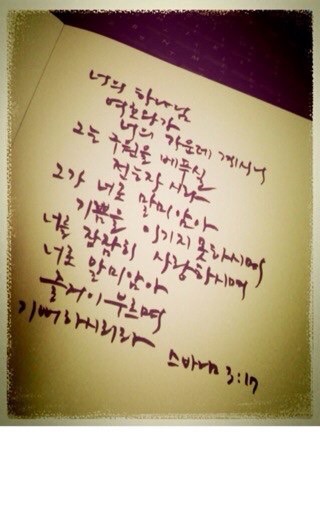 너의 하나님
여호와가
너의 가운데 계시니
그는 구원을 베푸실
전능자 시라
그가 너로 말미암아
기쁨을 이기지 못하시며
너를 잠잠히 사랑하시며
너로 말미암아
즐거이 부르며
기뻐하시리라
스바냐 3:17